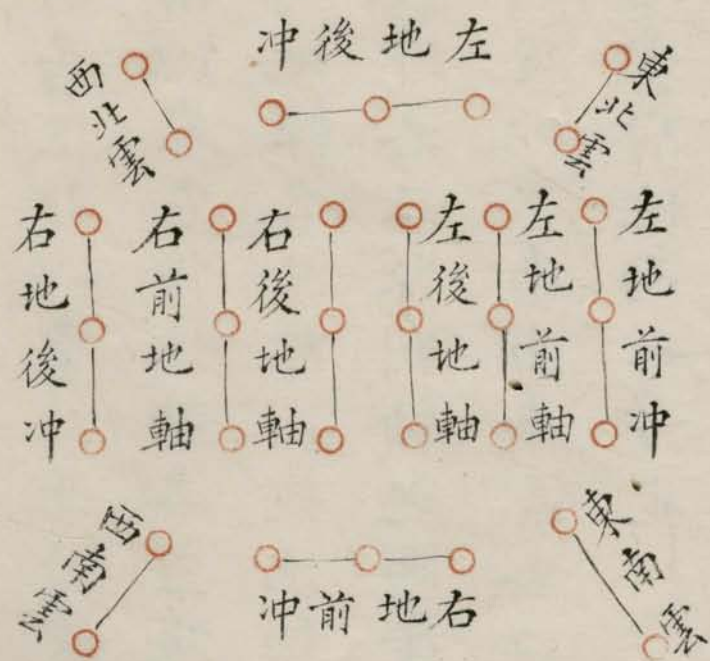 左地後冲
東北雲
西北雲
左地前冲
左地前軸
左後地軸
右後地軸
右前地軸
右地後冲
東南雲
右地前冲
西南雲